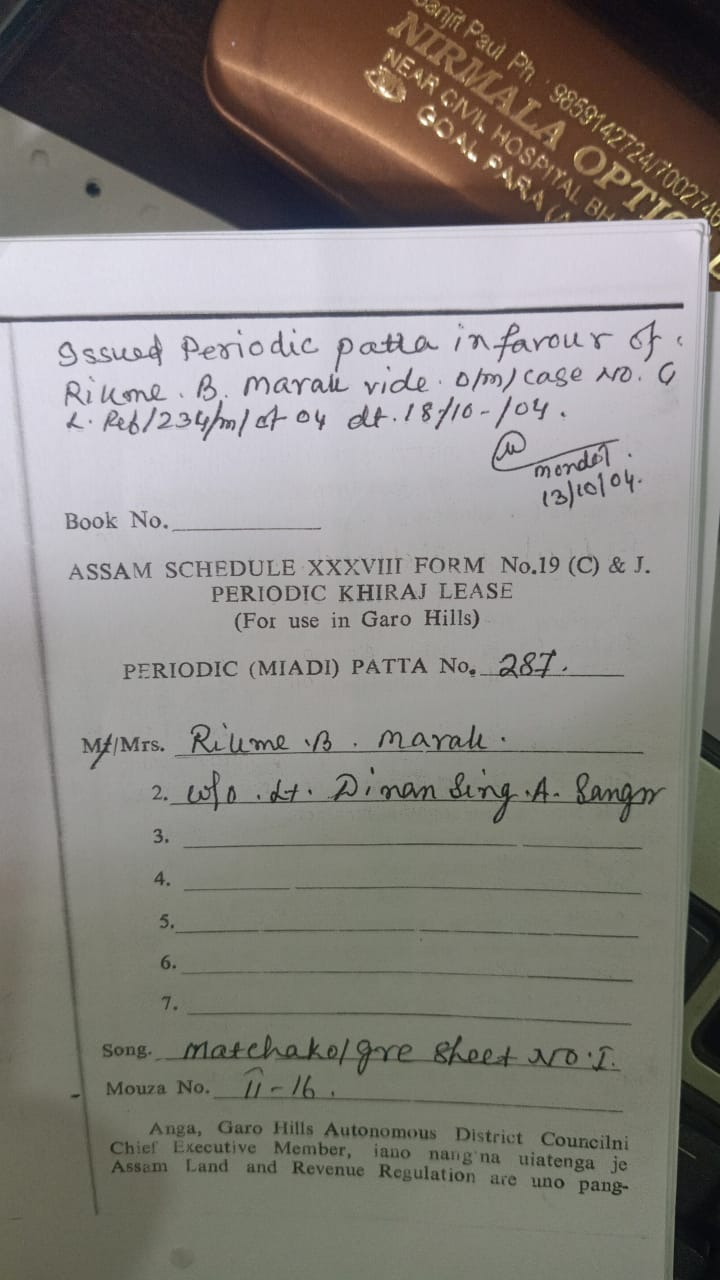 Sanjit Paul Ph : 9859142724/700274
NIRMALA OPTIC
NEAR CIVIL HOSPITAL BH
GOAL PARA (A
Issued Periodic patta in favour of
Rikme . B. Marak vide. o/m/case No. G
L. Reb/234/m/ of 04 dt. 18/10-/04.
mondol.
13/10/04.
Book No.
ASSAM SCHEDULE XXXVIII FORM No.19 (C) & J.
PERIODIC KHIRAJ LEASE
(For use in Garo Hills)
PERIODIC (MIADI) PATTA No. 287.
Mr/Mrs. Rikme .B. marak.
2. w/o . Lt. Dinan Sing .A. Sangm
3.
4.
5.
6.
7.
Song. matchakolgre Sheet NO. I.
Mouza No. II-16.
Anga, Garo Hills Autonomous District Councilni
Chief Executive Member, iano nang'na uiatenga je
Assam Land and Revenue Regulation are uno pang-